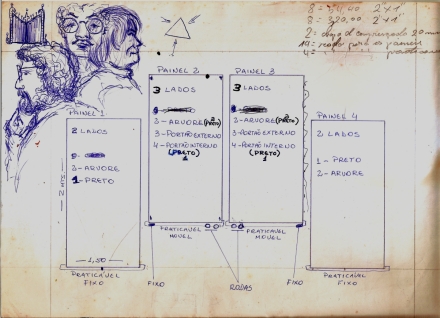 8 = 54,40 2"x1"
8 = 320,00 2"x1"
PAINEL 1
2 LADOS
3-ARVORE
1-PRETO
2 MTS
1,50
PRATICÁVEL
FIXO
PAINEL 2
3 LADOS
3-ARVORE (PRETO)
3-PORTÃO EXTERNO
4-PORTÃO INTERNO
(PRETO)
1
PRATICAVEL
MOVEL
PAINEL 3
3 LADOS
3-ARVORE (PRETO)
3-PORTÃO EXTERNO
4-PORTÃO INTERNO
(PRETO)
1
PRATICAVEL
MOVEL
PAINEL 4
2 LADOS
1-PRETO
2-ARVORE
PRATICÁVEL
FIXO
FIXO
RODAS
FIXO